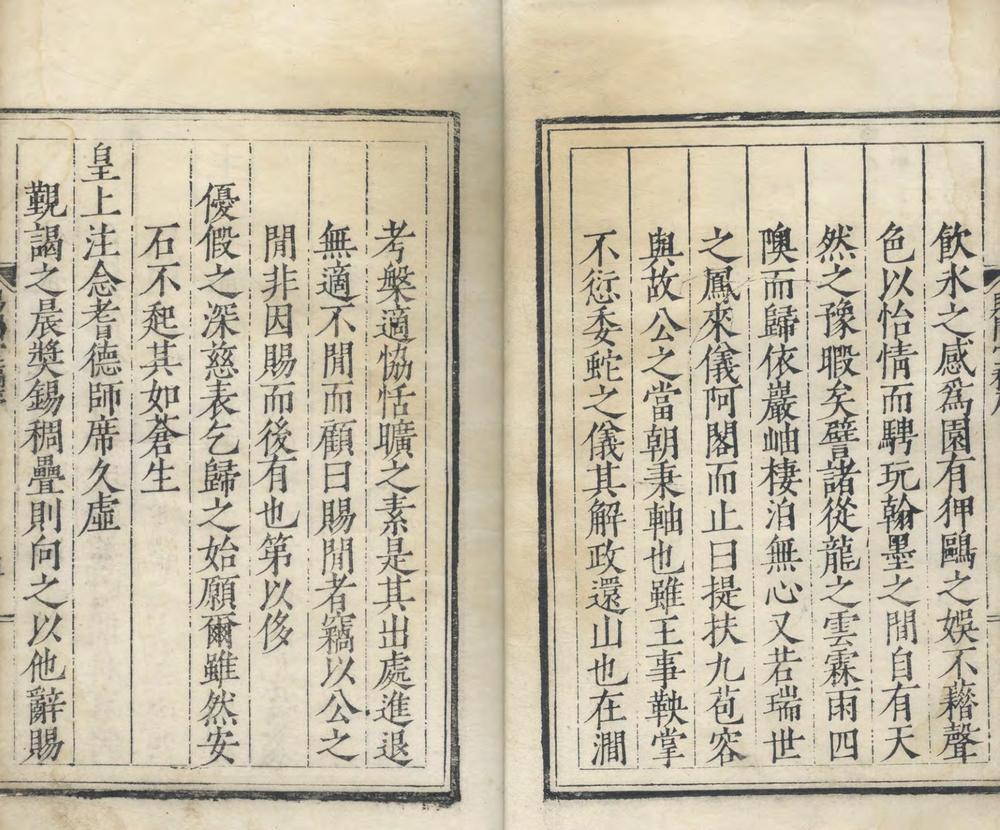 飲水之感爲園有狎鷗之娛不藉聲
色以怡情而騁玩翰墨之間自有天
然之豫暇矣譬諸從龍之雲霖雨四
隩而歸依巖岫棲泊無心又若瑞世
之鳳來儀阿閣而止曰提扶九苞容
與故公之當朝秉軸也雖王事鞅掌
不愆委蛇之儀其解政還山也在澗
考槃適協恬曠之素是其出處進退
無適不閒而顧曰賜閒者竊以公之
閒非因賜而後有也第以侈
優假之深慈表乞歸之始願爾雖然安
石不起其如蒼生
皇上注念耆德師席久虛
覲謁之晨獎錫稠疊則向之以他辭賜